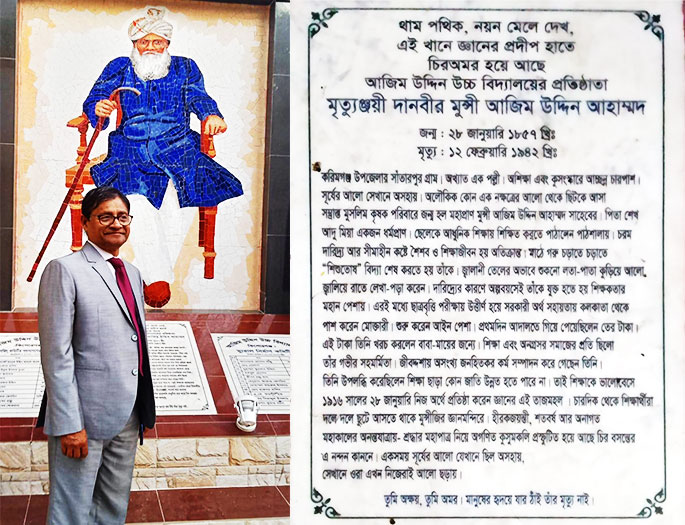 থাম পথিক, নয়ন মেলে দেখ,
এই খানে জ্ঞানের প্রদীপ হাতে
চিরঅমর হয়ে আছে
আজিম উদ্দিন উচ্চ বিদ্যালয়ের প্রতিষ্ঠাতা
মৃত্যুঞ্জয়ী দানবীর মুন্সী আজিম উদ্দিন আহাম্মদ
জন্ম : ২৮ জানুয়ারি ১৮৫৭ খ্রিঃ
মৃত্যু : ১২ ফেব্রুয়ারি ১৯৪২ খ্রিঃ
করিমগঞ্জ উপজেলার সাঁতারপুর গ্রাম। অখ্যাত এক পল্লী। অশিক্ষা এবং কুসংস্কারে আচ্ছন্ন চারপাশ।
সূর্যের আলো সেখানে অসহায়। অলৌকিক কোন এক নক্ষত্রের আলো থেকে ছিটকে আসা
সম্ভ্রান্ত মুসলিম কৃষক পরিবারে জন্ম হল মহাপ্রাণ মুন্সী আজিম উদ্দিন আহাম্মদ সাহেবের। পিতা শেখ
আদু মিয়া একজন ধর্মপ্রাণ। ছেলেকে আধুনিক শিক্ষায় শিক্ষিত করতে পাঠালেন পাঠশালায়। চরম
দারিদ্র্য আর সীমাহীন কষ্টে শৈশব ও শিক্ষাজীবন হয় অতিক্রান্ত। মাঠে গরু চড়াতে চড়াতে
“শিশুতোষ” বিদ্যা শেষ করতে হয় তাঁকে। জ্বালানী তেলের অভাবে শুকনো লতা-পাতা কুড়িয়ে আলো
জ্বালিয়ে রাতে লেখা-পড়া করেন। দারিদ্র্যের কারণে অল্পবয়সেই তাঁকে যুক্ত হতে হয় শিক্ষকতার
মহান পেশায়। এরই মধ্যে ছাত্রবৃত্তি পরীক্ষায় উত্তীর্ণ হয়ে সরকারী অর্থ সহায়তায় কলকাতা থেকে
পাশ করেন মোক্তারী। শুরু করেন আইন পেশা। প্রথমদিন আদালতে গিয়ে পেয়েছিলেন তের টাকা।
এই টাকা তিনি খরচ করলেন বাবা-মায়ের জন্যে। শিক্ষা এবং অনগ্রসর সমাজের প্রতি ছিলো
তাঁর গভীর সহমর্মিতা। জীবদ্দশায় অসংখ্য জনহিতকর কর্ম সম্পাদন করে গেছেন তিনি।
তিনি উপলব্ধি করেছিলেন শিক্ষা ছাড়া কোন জাতি উন্নত হতে পারে না। তাই শিক্ষাকে ভালোবেসে
১৯১৬ সালের ২৮ জানুয়ারি নিজ অর্থে প্রতিষ্ঠা করেন জ্ঞানের এই তাজমহল। চারদিক থেকে শিক্ষার্থীরা
দলে দলে ছুটে আসতে থাকে মুন্সীজির জ্ঞানমন্দিরে। হীরকজয়ন্তী, শতবর্ষ আর অনাগত
মহাকালের অনন্তযাত্রায়- শ্রদ্ধার মহাপাত্র নিয়ে অগণিত কুসুমকলি প্রস্ফুটিত হয়ে আছে চির বসন্তের
এ নন্দন কাননে। একসময় সূর্যের আলো যেখানে ছিল অসহায়,
সেখানে ওরা এখন নিজেরাই আলো ছড়ায়।
তুমি অক্ষয়, তুমি অমর। মানুষের হৃদয়ে যার ঠাঁই তাঁর মৃত্যু নাই।